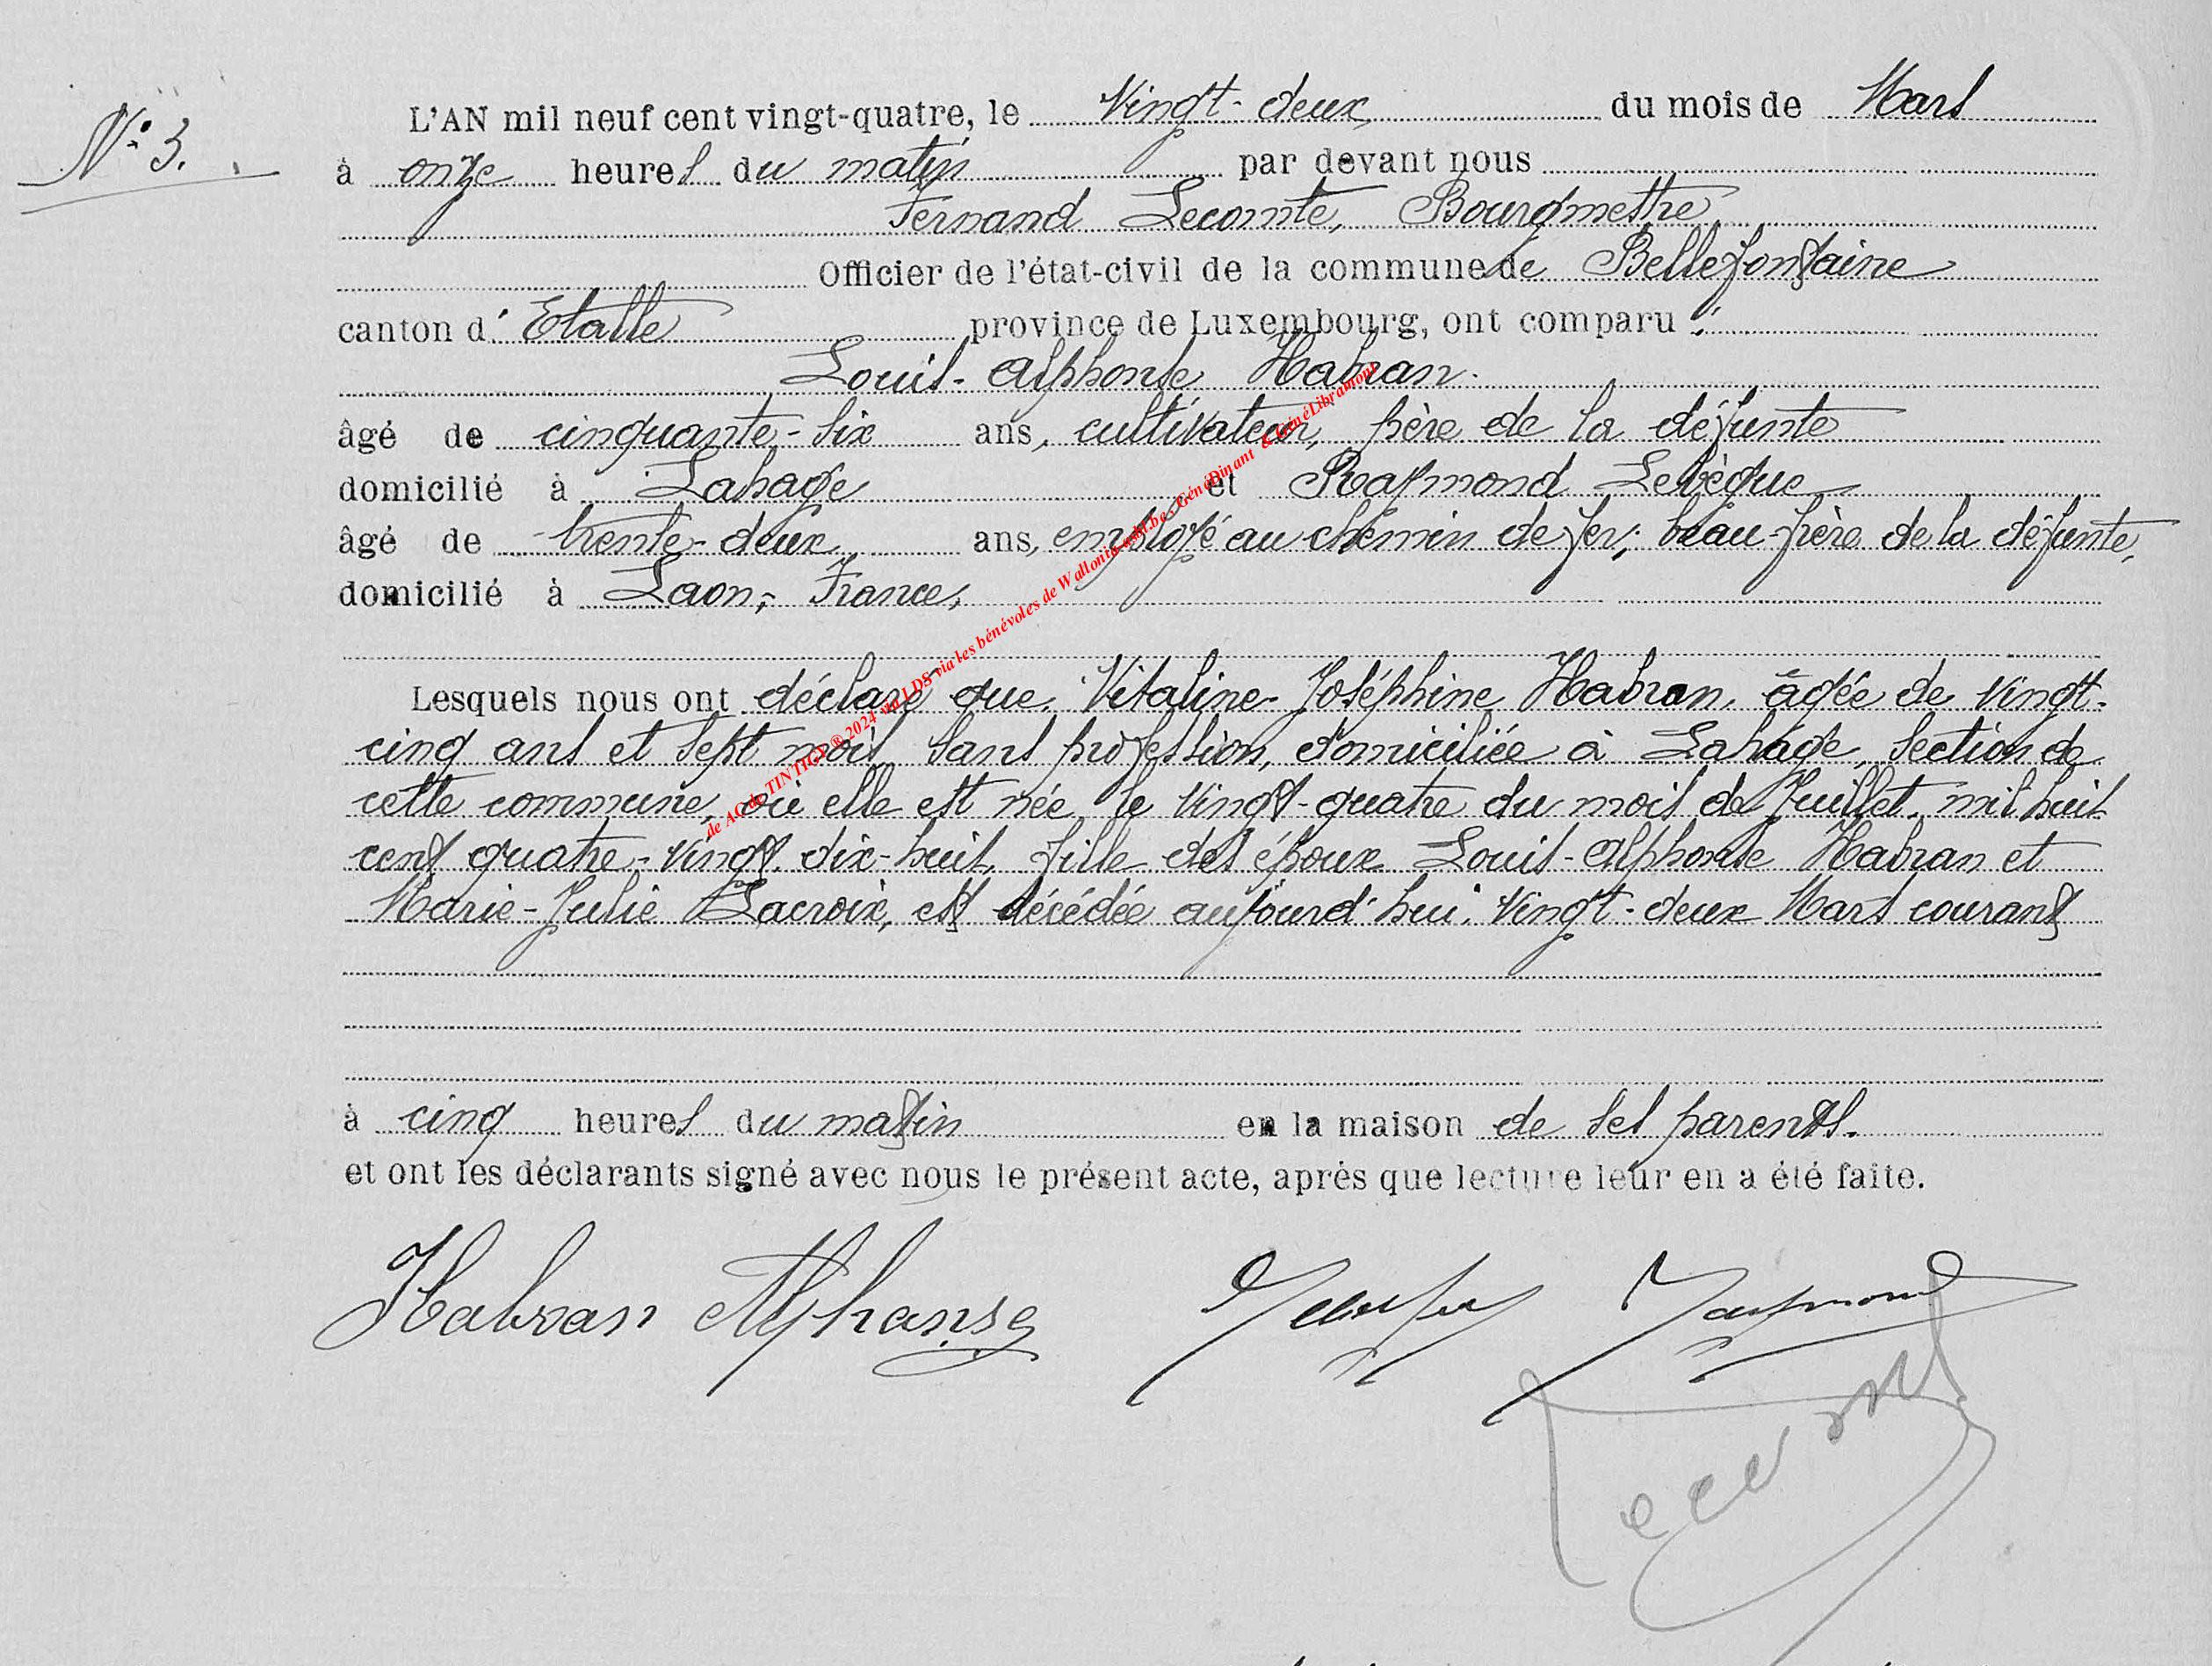 N° 3.
L'AN mil neuf cent vingt-quatre, le Vingt-deux, du mois de Mars
à onze heures du matin par devant nous
Fernand Lecomte, Bourgmestre,
Officier de l'état-civil de la commune de Bellefontaine
canton d'Etalle province de Luxembourg, ont comparu :
Louis-Alphonse Habran.
âgé de cinquante-six ans, cultivateur, père de la défunte
domicilié à Lahage et Raymond Levèque
âgé de trente-deux ans, employé au chemin de fer; beau-frère de la défunte,
domicilié à Laon, France,
Lesquels nous ont déclaré que Vitaline-Joséphine Habran, âgée de vingt-
cinq ans et sept mois, sans profession, domiciliée à Lahage, section de
cette commune, où elle est née le vingt-quatre du mois de Juillet mil huit
cent quatre-vingt dix-huit, fille des époux Louis-Alphonse Habran et
Marie-Julie Lacroix, est décédée aujourd'hui vingt-deux Mars courant
à cinq heures du matin en la maison de ses parents.
et ont les déclarants signé avec nous le présent acte, après que lecture leur en a été faite.
Habran Alphonse Raymond
Lecomte
de AG de TINTIGNY ® 2024 via LDS via les bénévoles de Wallonia-asbl.be - GénéDinant & GénéLibramont